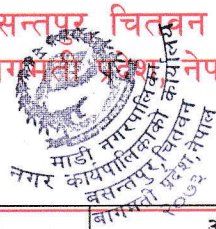 सन्तपुर, चितवन
बागमती प्रदेश, नेप
माडी नगरपालिका
नगर कार्यपालिकाको कार्यालय
बसन्तपुर, चितवन
बागमती प्रदेश, नेपाल
२०७३